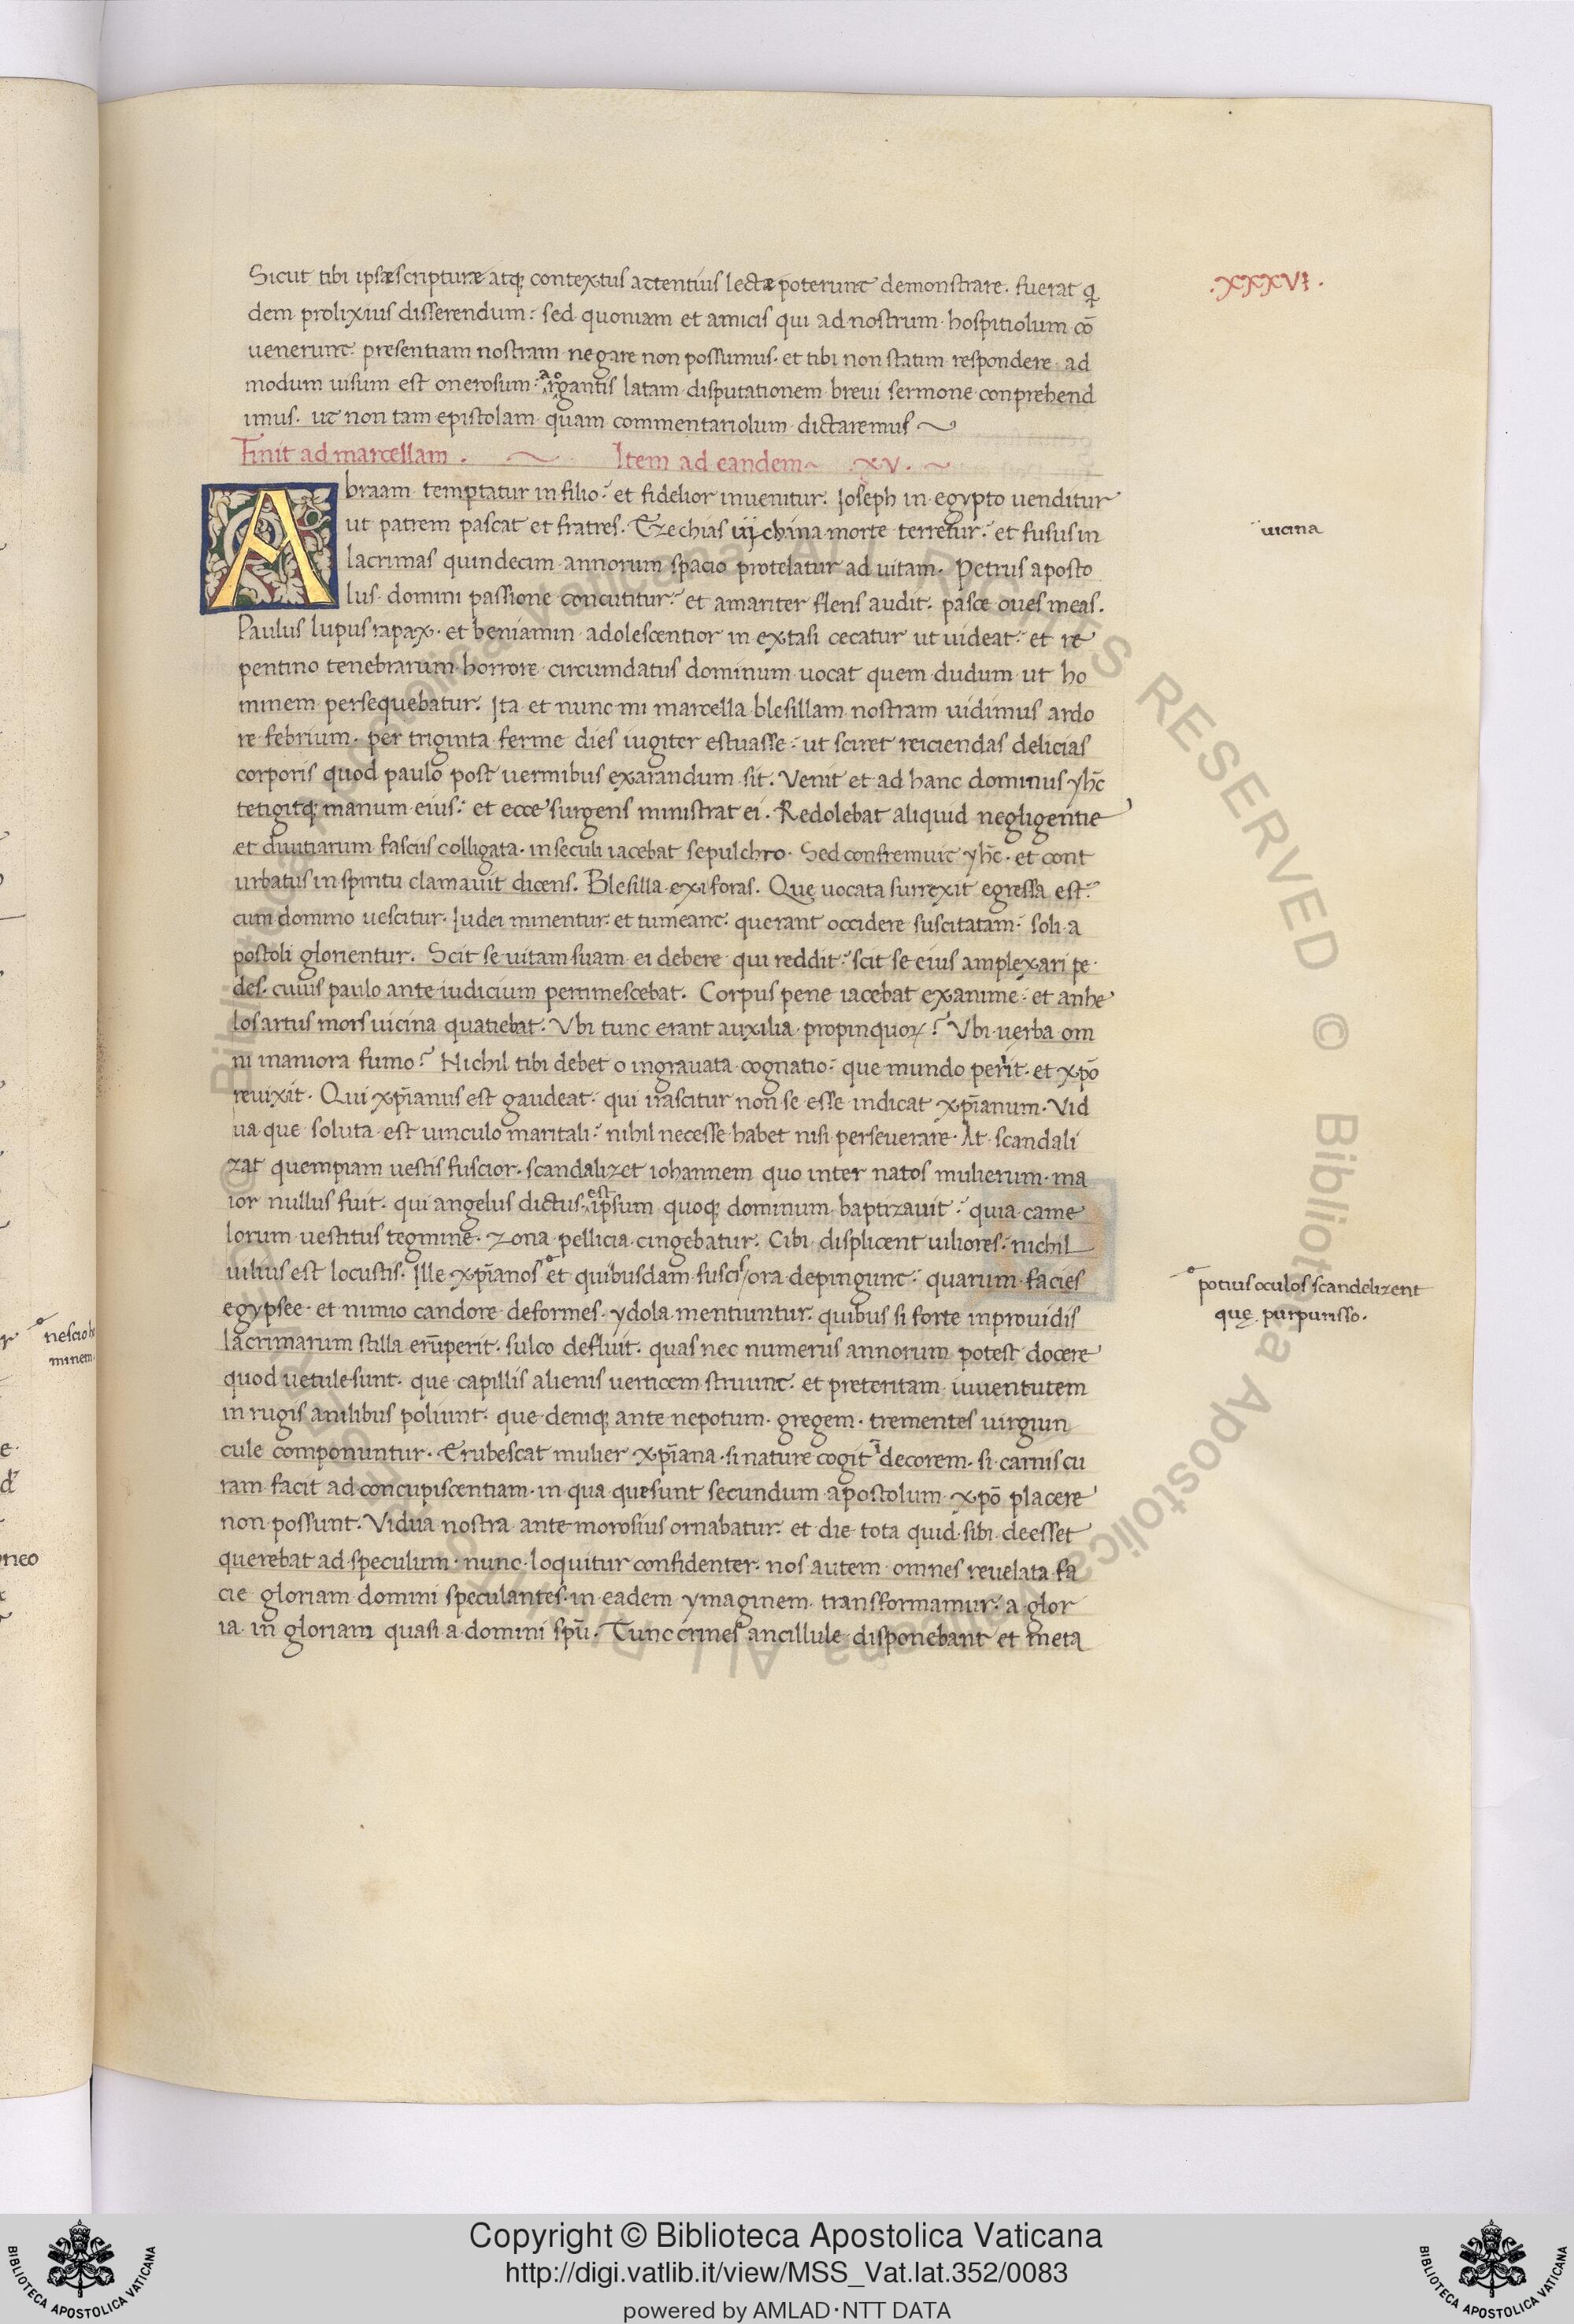 Sicut tibi ipsæ scripturæ atq; contextus attentius lectæ poterunt demonstrare. fuerat q̇
.XXXVI.
dem prolixius disserendum: sed quoniam et amicis qui ad nostrum hospitiolum cō
uenerunt. presentiam nostram negare non possumus. et tibi non statim respondere ad
modum uisum est onerosum: latam disputationem breui sermone conprehend
imus. ut non tam epistolam quam commentariolum dictaremus
Finit ad marcellam. Item ad eandem .XV.
Abraam temptatur in filio: et fidelior inuenitur. Ioseph in egypto uenditur
ut patrem pascat et fratres. Ezechias china morte terretur: et fusus in
uicina
lacrimas quindecim annorum spacio protelatur ad uitam. Petrus aposto
lus domini passione concutitur: et amariter flens audit. pasce oues meas.
Paulus lupus rapax. et beniamin adolescentior in extasi cecatur ut uideat: et re
pentino tenebrarum horrore circumdatus dominum uocat quem dudum ut ho
minem persequebatur. Ita et nunc mi marcella blesillam nostram uidimus ardo
re febrium. per triginta ferme dies iugiter estuasse: ut sciret reiciendas delicias
corporis quod paulo post uermibus exarandum sit. Venit et ad hanc dominus yhc̄
tetigitq; manum eius: et ecce surgens ministrat ei. Redolebat aliquid negligentie
et diuitiarum fasciis colligata. in seculi iacebat sepulchro. Sed confremuit yhc̄. et cont
urbatus in spiritu clamauit dicens. Blesilla exi foras. Quę uocata surrexit egressa est:
cum domino uescitur. Iudei minentur. et tumeant. querant occidere suscitatam: soli a
postoli glorientur. Scit se uitam suam ei debere qui reddit: scit se eius amplexari pe
des. cuius paulo ante iudicium pertimescebat. Corpus pene iacebat exanime: et anhe
los artus mors uicina quatiebat. Vbi tunc erant auxilia propinquoꝝ? Vbi uerba om
ni maniora fumo? Nichil tibi debet o ingrauata cognatio: que mundo periit. et xp̄o
reuixit. Qui xp̄ianus est gaudeat: qui irascitur non se esse indicat xp̄ianum. Vid
ua que soluta est uinculo maritali: nihil necesse habet nisi perseuerare. At scandali
zat quempiam uestis fuscior. scandalizet iohannem quo inter natos mulierum ma
ior nullus fuit. qui angelus dictus est ipsum quoq; dominum baptizauit: quia came
lorum uestitus tegmine. zona pellicia cingebatur. Cibi displicent uiliores. nichil
uilius est locustis. Ille xp̄ianos et quibusdam fuscis ora depingunt: quarum facies
potius oculos scandelizent
quę purpurisso.
egypsee et nimio candore deformes. ydola mentiuntur. quibus si forte inprouidis
lacrimarum stilla erūperit. sulco defluit. quas nec numerus annorum potest docere
quod uetule sunt. que capillis alienis uerticem struunt. et preteritam iuuentutem
in rugis anilibus poliunt. que deniq; ante nepotum gregem. trementes uirgiun
cule componuntur. Erubescat mulier xp̄iana. si nature cogit decorem. si carnis cu
ram facit ad concupiscentiam. in qua que sunt secundum apostolum xp̄o placere
non possunt. Vidua nostra ante morosius ornabatur. et die tota quid sibi deesset
querebat ad speculum. nunc loquitur confidenter. nos autem omnes reuelata fa
cie gloriam domini speculantes. in eadem ymaginem transformamur. a glor
ia in gloriam quasi a domini spū. Tunc crines ancillule disponebant et meta
nescio ho
minem.
Copyright © Biblioteca Apostolica Vaticana
http://digi.vatlib.it/view/MSS_Vat.lat.352/0083
powered by AMLAD·NTT DATA
BIBLIOTECA APOSTOLICA VATICANA
BIBLIOTECA APOSTOLICA VATICANA